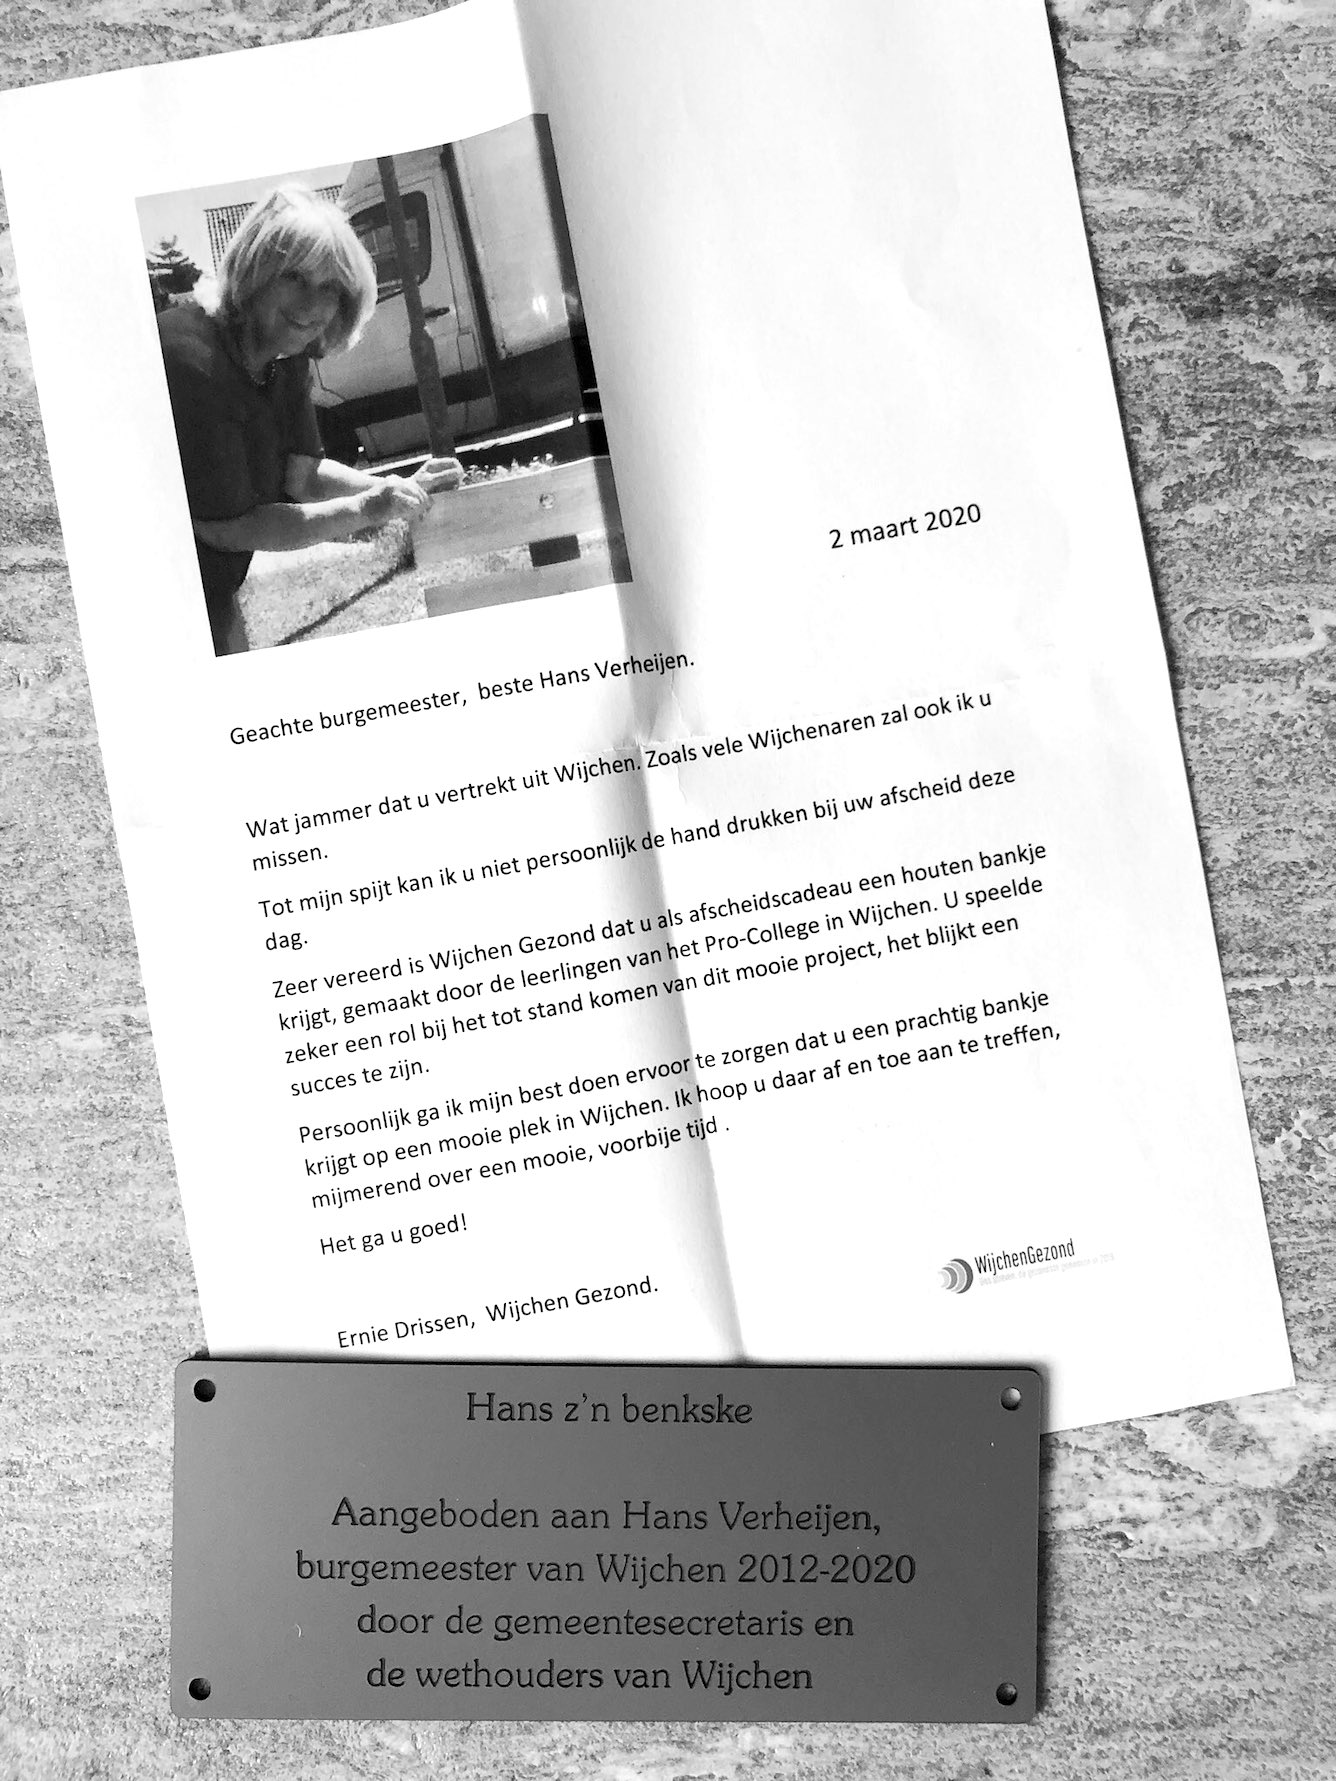 2 maart 2020
Geachte burgemeester, beste Hans Verheijen.
Wat jammer dat u vertrekt uit Wijchen. Zoals vele Wijchenaren zal ook ik u
missen.
Tot mijn spijt kan ik u niet persoonlijk de hand drukken bij uw afscheid deze
dag.
Zeer vereerd is Wijchen Gezond dat u als afscheidscadeau een houten bankje
krijgt, gemaakt door de leerlingen van het Pro-College in Wijchen. U speelde
zeker een rol bij het tot stand komen van dit mooie project, het blijkt een
succes te zijn.
Persoonlijk ga ik mijn best doen ervoor te zorgen dat u een prachtig bankje
krijgt op een mooie plek in Wijchen. Ik hoop u daar af en toe aan te treffen,
mijmerend over een mooie, voorbije tijd .
Het ga u goed!
WijchenGezond
Ernie Drissen, Wijchen Gezond.
Hans z'n benkske
Aangeboden aan Hans Verheijen,
burgemeester van Wijchen 2012-2020
door de gemeentesecretaris en
de wethouders van Wijchen